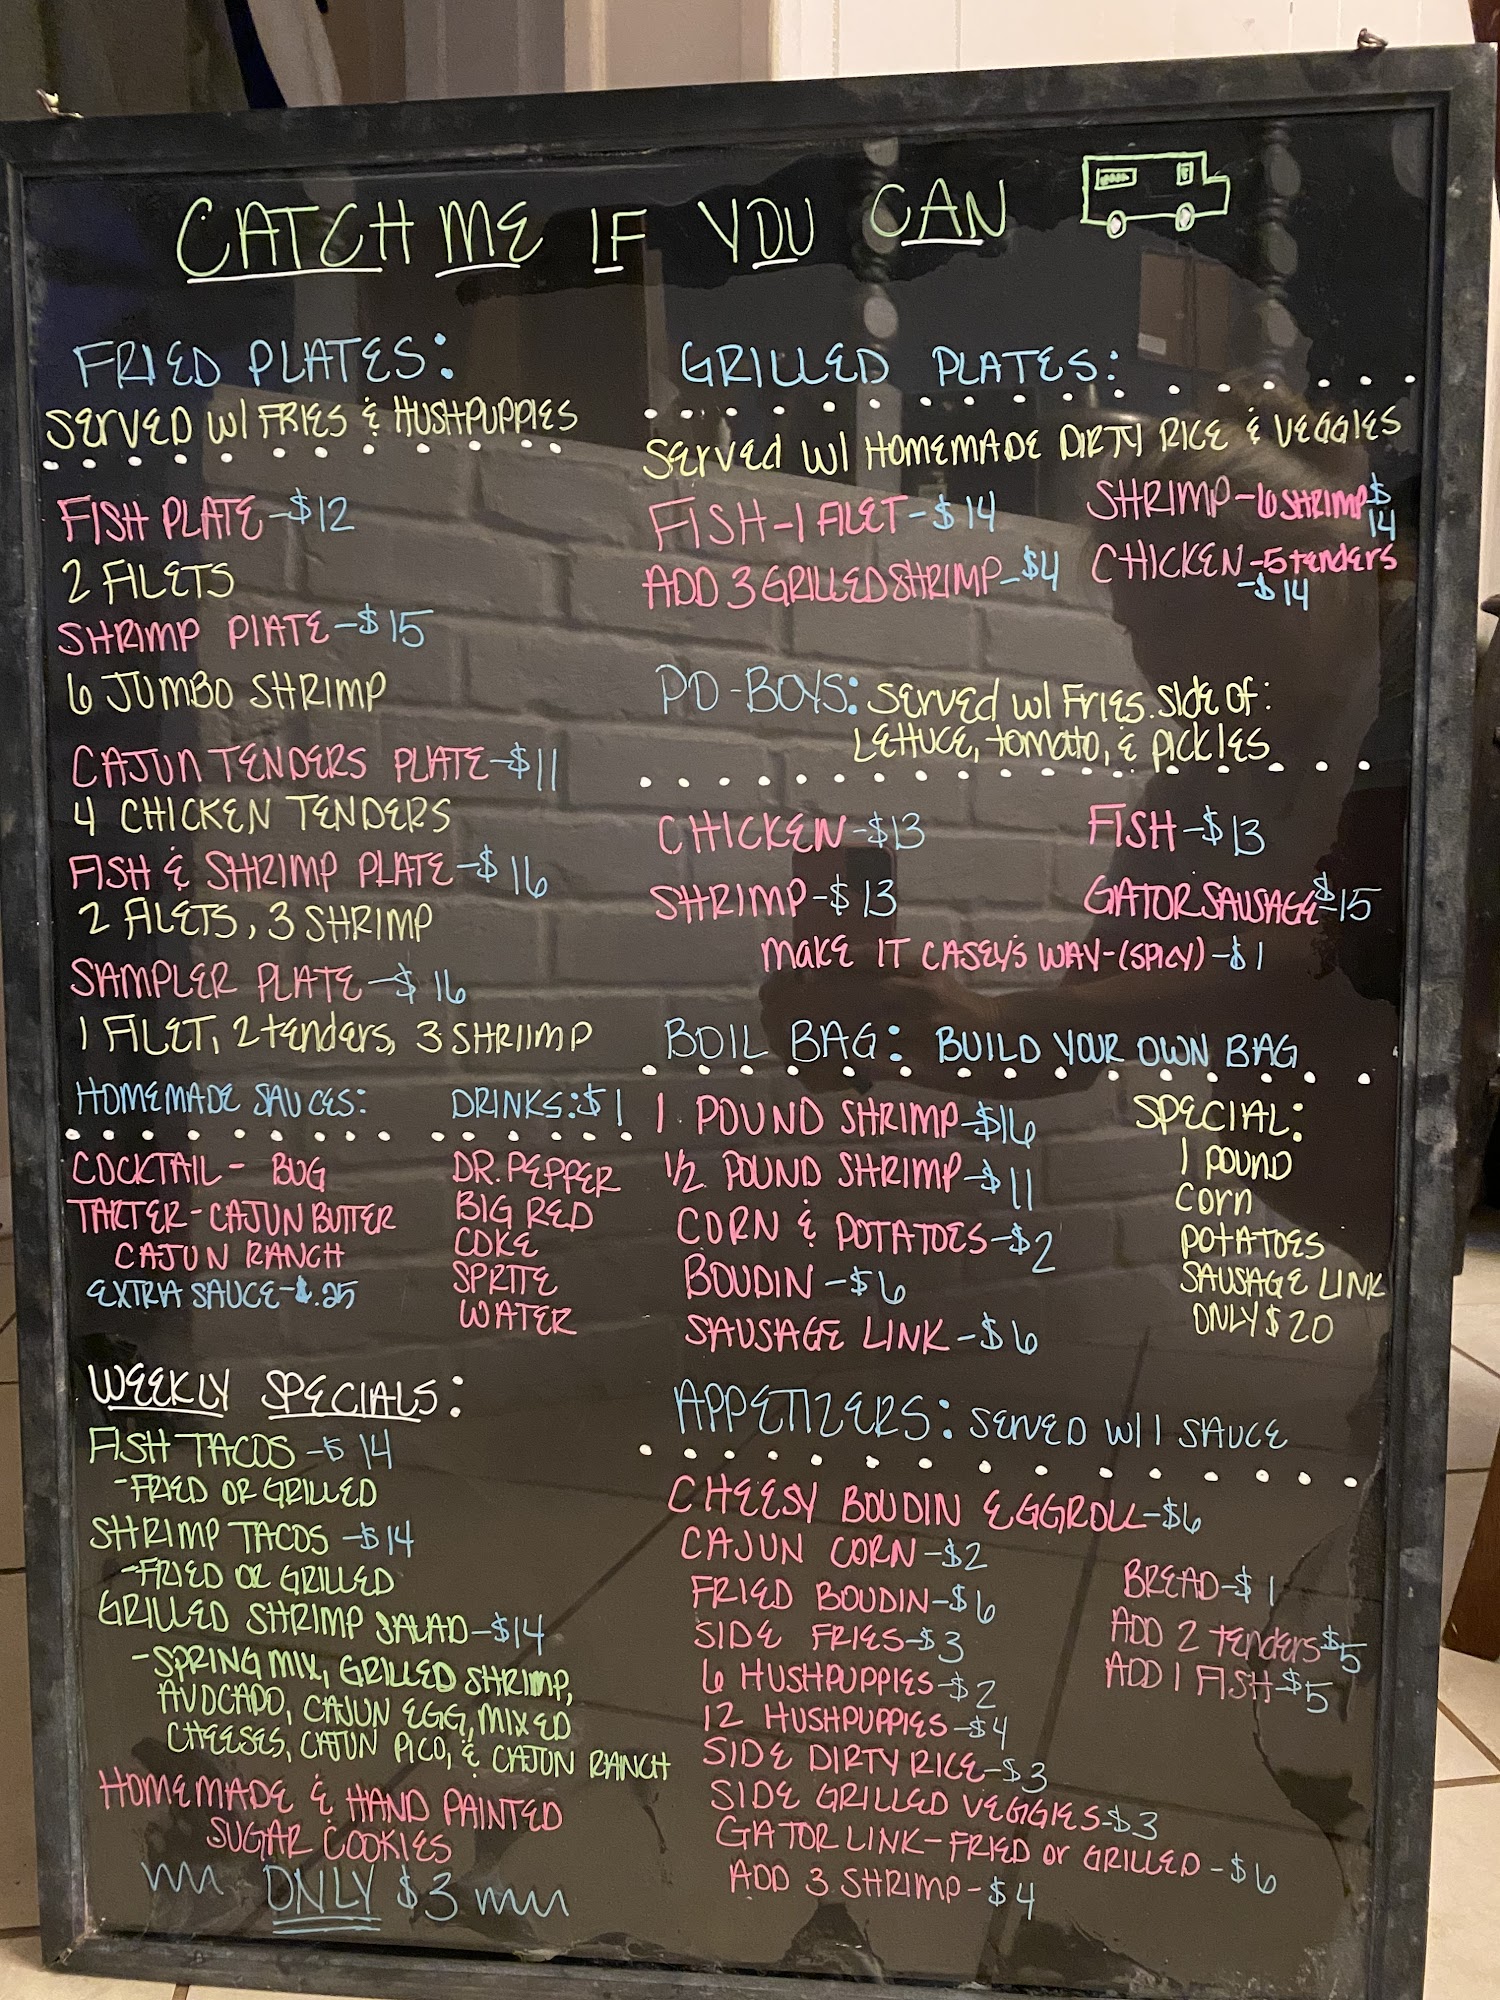 CATCH ME IF YOU CAN
FRIED PLATES:
SERVED W/ FRIES & HUSHPUPPIES
FISH PLATE -$12
2 FILETS
SHRIMP PLATE -$15
6 JUMBO SHRIMP
CAJUN TENDERS PLATE -$11
4 CHICKEN TENDERS
FISH & SHRIMP PLATE -$16
2 FILETS, 3 SHRIMP
SAMPLER PLATE -$16
1 FILET, 2 tenders, 3 SHRIIMP
HOMEMADE SAUCES:
COCKTAIL - BUG
TARTER - CAJUN BUTTER
CAJUN RANCH
EXTRA SAUCE -$.25
DRINKS: $1
DR. PEPPER
BIG RED
COKE
SPRITE
WATER
WEEKLY SPECIALS:
FISH TACOS -$14
-FRIED OR GRILLED
SHRIMP TACOS -$14
-FRIED OR GRILLED
GRILLED SHRIMP SALAD -$14
-SPRING MIX, GRILLED SHRIMP,
AVOCADO, CAJUN EGG, MIXED
CHEESES, CAJUN PICO, & CAJUN RANCH
HOMEMADE & HAND PAINTED
SUGAR COOKIES
ONLY $3
GRILLED PLATES:
SERVED W/ HOMEMADE DIRTY RICE & VEGGIES
FISH -1 FILET -$14
ADD 3 GRILLED SHRIMP -$4
SHRIMP -6 SHRIMP $
14
CHICKEN -5 tenders
-$14
PO-BOYS: SERVED W/ FRIES. SIDE OF:
LETTUCE, tomato, & PICKLES
CHICKEN -$13 FISH -$13
SHRIMP -$13 GATOR SAUSAGE $15
MAKE IT CASEY'S WAY -(SPICY) -$1
BOIL BAG: BUILD YOUR OWN BAG
1 POUND SHRIMP -$16
1/2 POUND SHRIMP -$11
CORN & POTATOES -$2
BOUDIN -$6
SAUSAGE LINK -$6
SPECIAL:
1 POUND
CORN
POTATOES
SAUSAGE LINK
ONLY $20
APPETIZERS: SERVED W/ 1 SAUCE
CHEESY BOUDIN EGGROLL -$6
CAJUN CORN -$2
FRIED BOUDIN -$6
SIDE FRIES -$3
6 HUSHPUPPIES -$2
12 HUSHPUPPIES -$4
SIDE DIRTY RICE -$3
SIDE GRILLED VEGGIES -$3
GATOR LINK - FRIED OR GRILLED -$6
ADD 3 SHRIMP -$4
BREAD -$1
ADD 2 tenders $5
ADD 1 FISH -$5